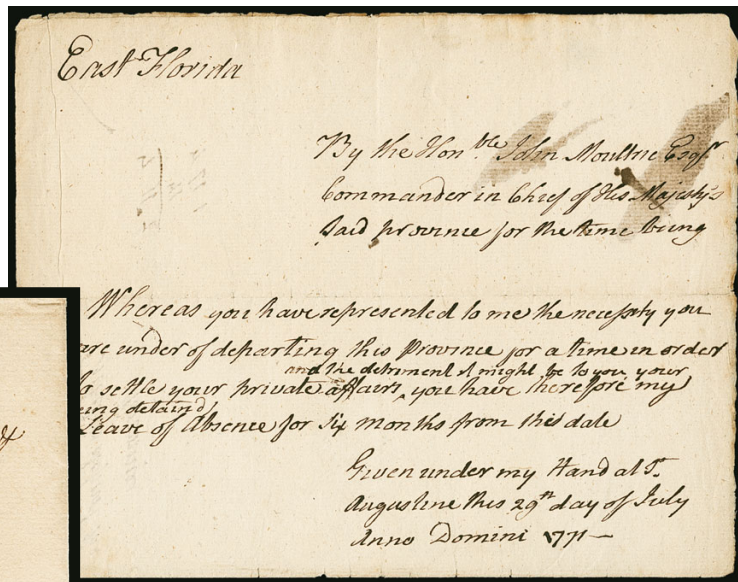 East Florida
By the Hon.ble John Moultrie Esqr.
Commander in Chief of His Majesty's
Said province for the time being
Whereas you have represented to me the necessity you
are under of departing this Province for a time in order
and the detriment it might be to you your
to settle your private affairs, you have therefore my
being detain'd
Leave of Absence for six months from this date
Given under my Hand at St.
Augustine this 29th day of July
Anno Domini 1771—